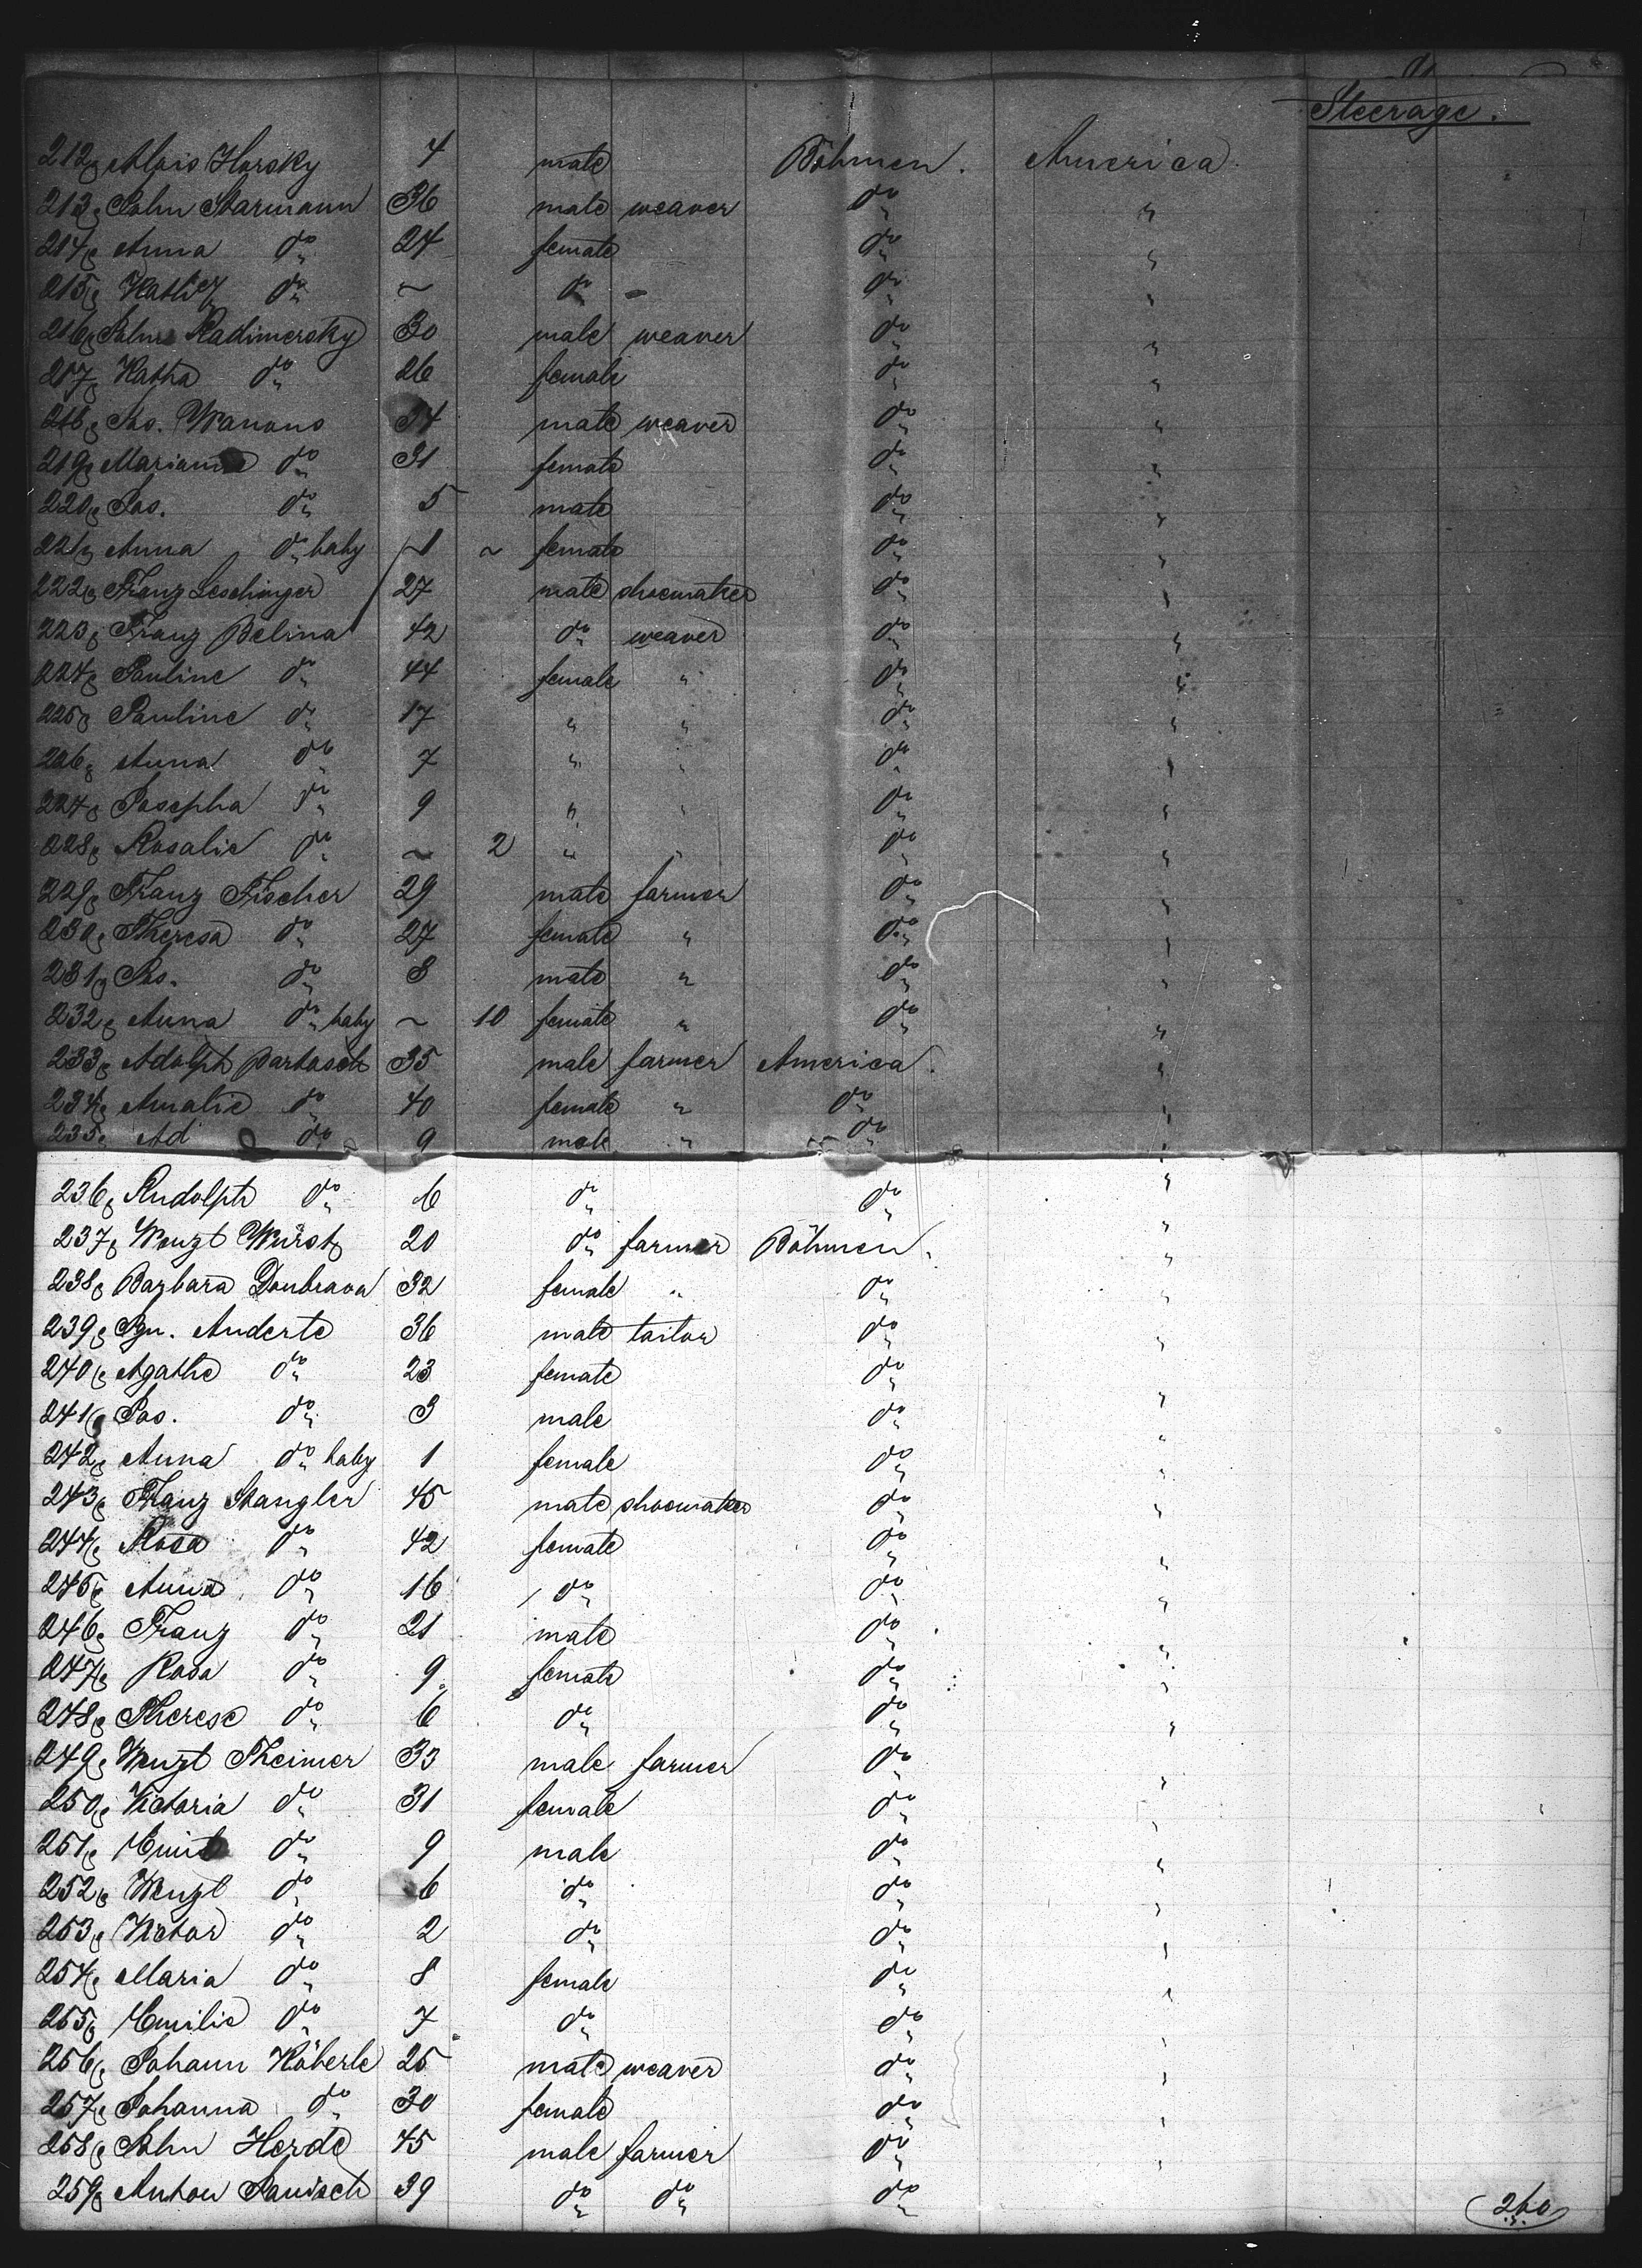 Steerage.
212 Alois Horsky 4 male Böhmen. America.
213 John Starmann 36 male weaver do "
214 Anna do 24 female do "
215 do ~ do - do "
216 John Radimersky 30 male weaver do "
217 Katha do 26 female do "
218 Jos. 34 male weaver do "
219 Marianna do 31 female do "
220 Jos. do 5 male do "
221 Anna do baby 1 ~ female do "
222 Franz Leschinger 27 male shoemaker do "
223 Franz Belina 42 do weaver do "
224 Pauline do 44 female " do "
225 Pauline do 17 " " do "
226 Anna do 7 " " do "
227 Josepha do 9 " " do "
228 Rosalie do ~ 2 " " do "
229 Franz Fischer 29 male farmer do "
230 Theresa do 27 female " do "
231 Jos. do 8 male " do "
232 Anna do baby ~ 10 female " do "
233 Adolph Bartosch 35 male farmer America. "
234 Amalie do 40 female " do "
235 Ad do 9 male " do "
236 Rudolph do 6 do do "
237 Wenzl Wurst 20 do farmer Böhmen. "
238 Barbara Doubrava 32 female " do "
239 Ign. Anderle 36 male tailor do "
240 Agathe do 23 female do "
241 Jos. do 3 male do "
242 Anna do baby 1 female do "
243 Franz Stangler 45 male shoemaker do "
244 Rosa do 42 female do "
245 Anna do 16 do do "
246 Franz do 21 male do "
247 Rosa do 9 female do "
248 Therese do 6 do do "
249 Wenzl Theimer 33 male farmer do "
250 Victoria do 31 female do "
251 Emil do 9 male do "
252 Wenzl do 6 do do "
253 Victor do 2 do do "
254 Maria do 8 female do "
255 Emilie do 7 do do "
256 Johann Köberle 25 male weaver do "
257 Johanna do 30 female do "
258 John Herde 45 male farmer do "
259 Anton Janisch 39 do do do
260